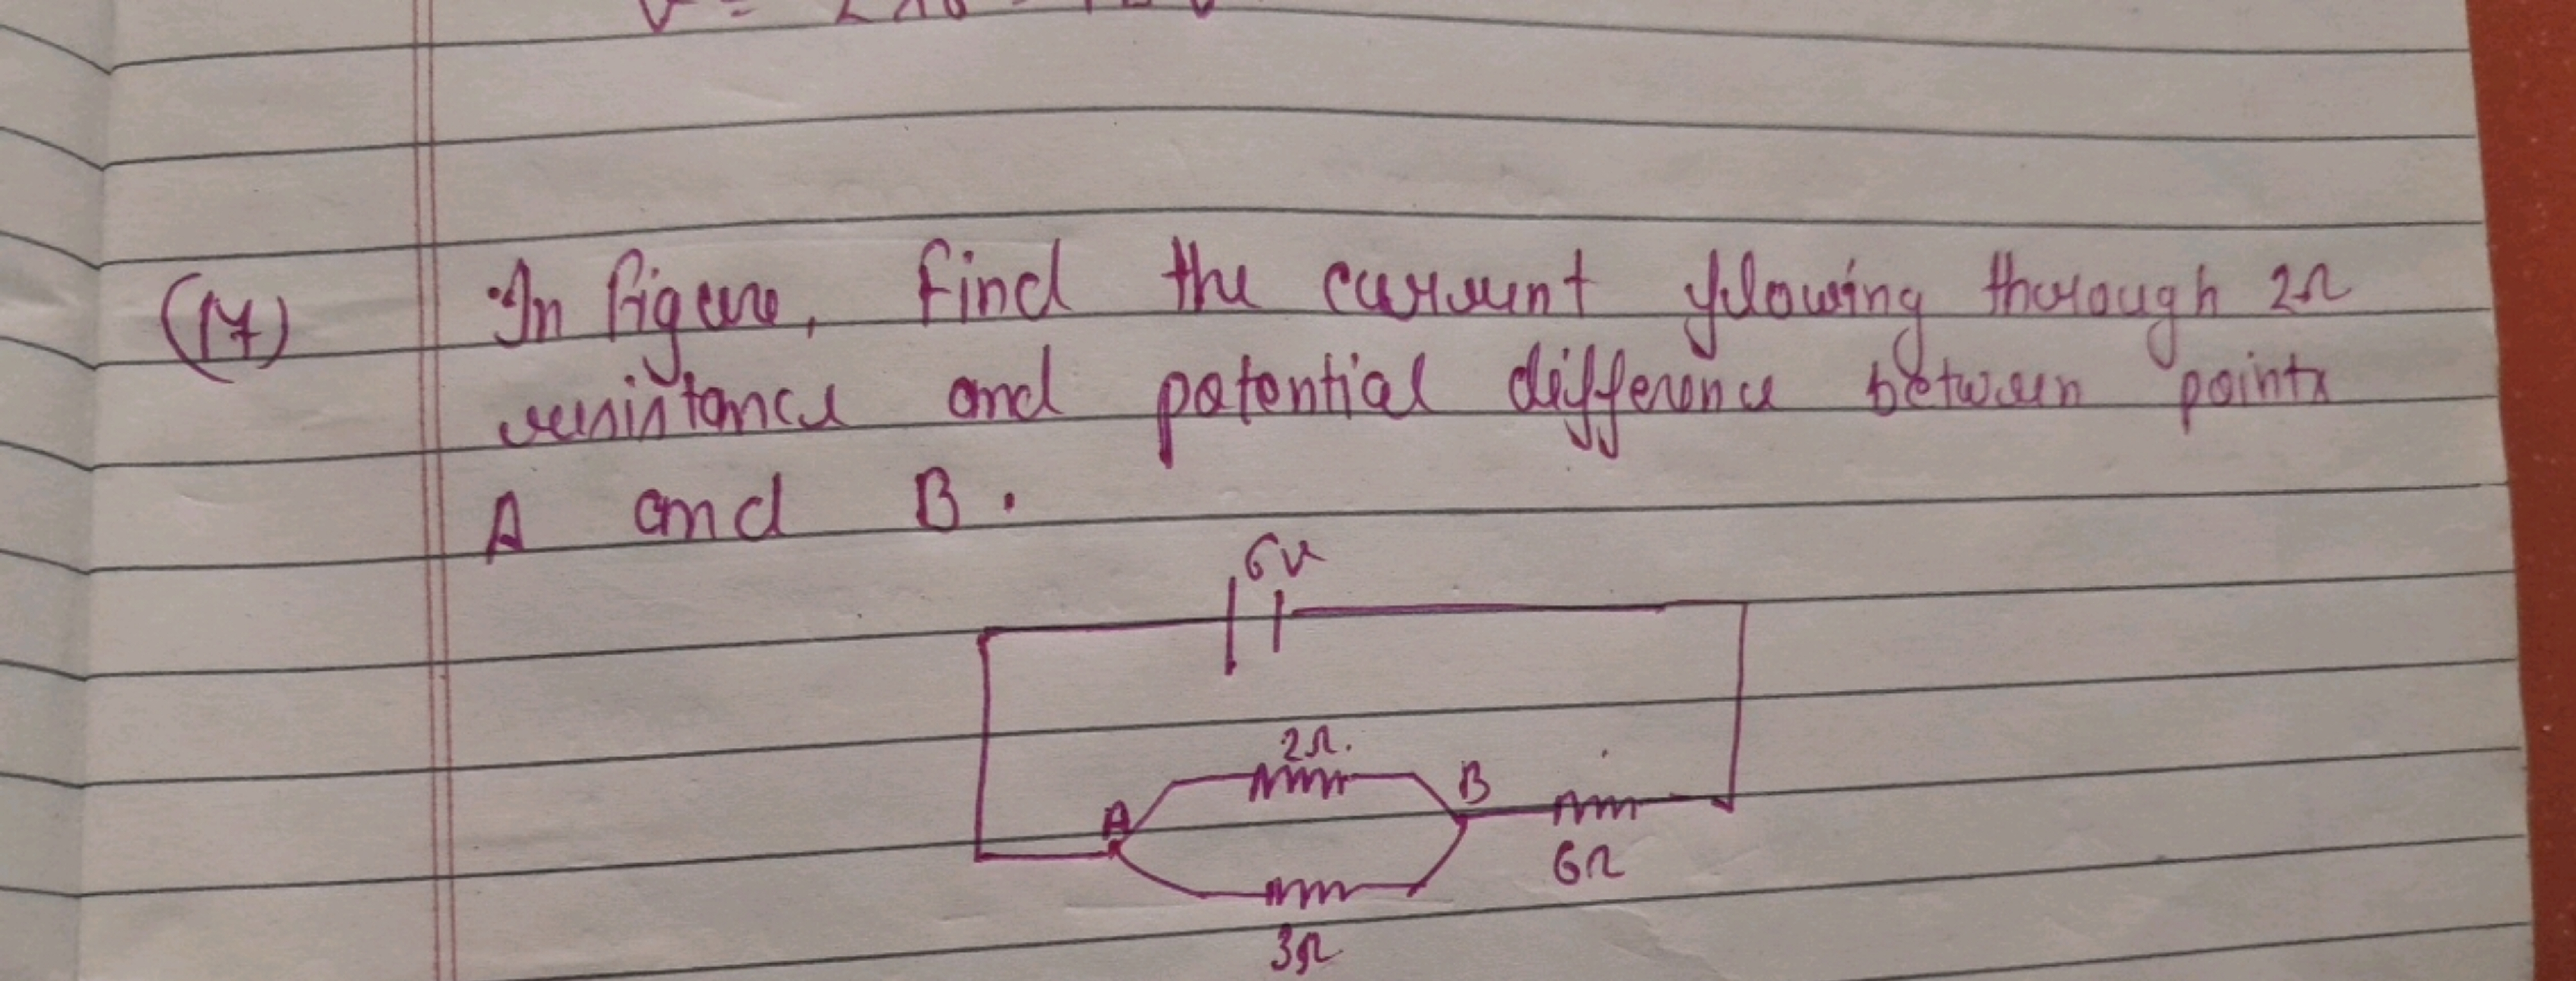 (17) In figure, find the current flowing through 2Ω
resistance and potential difference between points
A and B.
6V
2Ω.
A
B
6Ω
3Ω